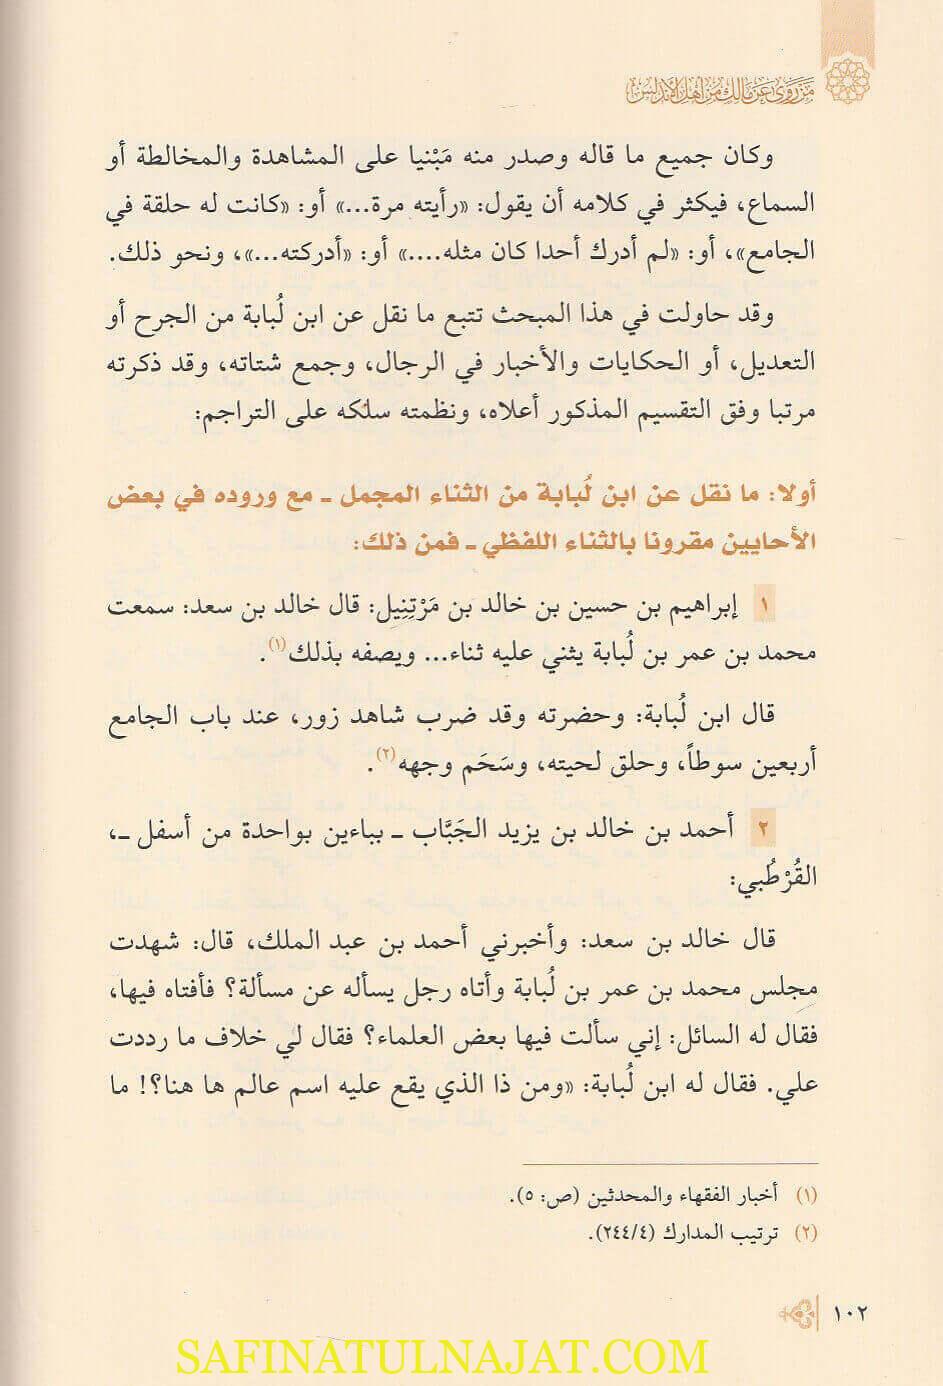 من روى عن مالك من أهل الأندلس
وكان جميع ما قاله وصدر منه مَبْنيا على المشاهدة والمخالطة أو
السماع، فيكثر في كلامه أن يقول: «رأيته مرة...» أو: «كانت له حلقة في
الجامع»، أو: «لم أدرك أحدا كان مثله....» أو: «أدركته...»، ونحو ذلك.
وقد حاولت في هذا المبحث تتبع ما نقل عن ابن لُبابة من الجرح أو
التعديل، أو الحكايات والأخبار في الرجال، وجمع شتاته، وقد ذكرته
مرتبا وفق التقسيم المذكور أعلاه، ونظمته سلكه على التراجم:
أولا: ما نقل عن ابن لُبابة من الثناء المجمل ـ مع وروده في بعض
الأحايين مقرونا بالثناء اللفظي ـ فمن ذلك:
١ إبراهيم بن حسين بن خالد بن مَرْتِنِيل: قال خالد بن سعد: سمعت
محمد بن عمر بن لُبابة يثني عليه ثناء... ويصفه بذلك(١).
قال ابن لُبابة: وحضرته وقد ضرب شاهد زور، عند باب الجامع
أربعين سوطاً، وحلق لحيته، وسَحَم وجهه(٢).
٢ أحمد بن خالد بن يزيد الجَبَّاب ـ بباءين بواحدة من أسفل ـ،
القُرْطُبي:
قال خالد بن سعد: وأخبرني أحمد بن عبد الملك، قال: شهدت
مجلس محمد بن عمر بن لُبابة وأتاه رجل يسأله عن مسألة؟ فأفتاه فيها،
فقال له السائل: إني سألت فيها بعض العلماء؟ فقال لي خلاف ما رددت
علي. فقال له ابن لُبابة: «ومن ذا الذي يقع عليه اسم عالم ها هنا؟! ما
(١) أخبار الفقهاء والمحدثين (ص: ٥).
(٢) ترتيب المدارك (٢٤٤/٤).
١٠٢
SAFINATULNAJAT.COM